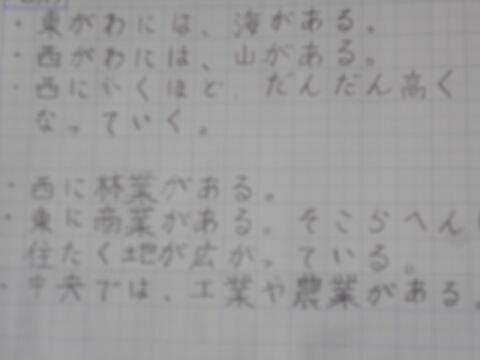 ・東がわには、海がある。
・西がわには、山がある。
・西にいくほど、だんだん高く
なっていく。
・西に林業がある。
・東に商業がある。そこらへん
住たく地が広がっている。
・中央では、工業や農業がある。